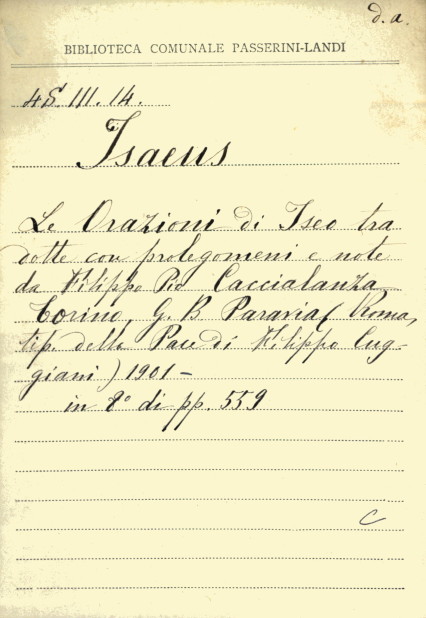 d.a.
BIBLIOTECA COMUNALE PASSERINI-LANDI
4S.III.14.
Isaeus
Le Orazioni di Iseo tra
dotte con prolegomeni e note
da Filippo Pio Caccialanza
Torino, G. B Paravia (Roma,
tip. della Pace di Filippo Cug-
giani) 1901 -
in 8° di pp. 559
C